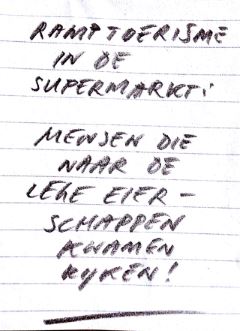 RAMPTOERISME
IN DE
SUPERMARKT:
MENSEN DIE
NAAR DE
LEGE EIER-
SCHAPPEN
KWAMEN
KYKEN!